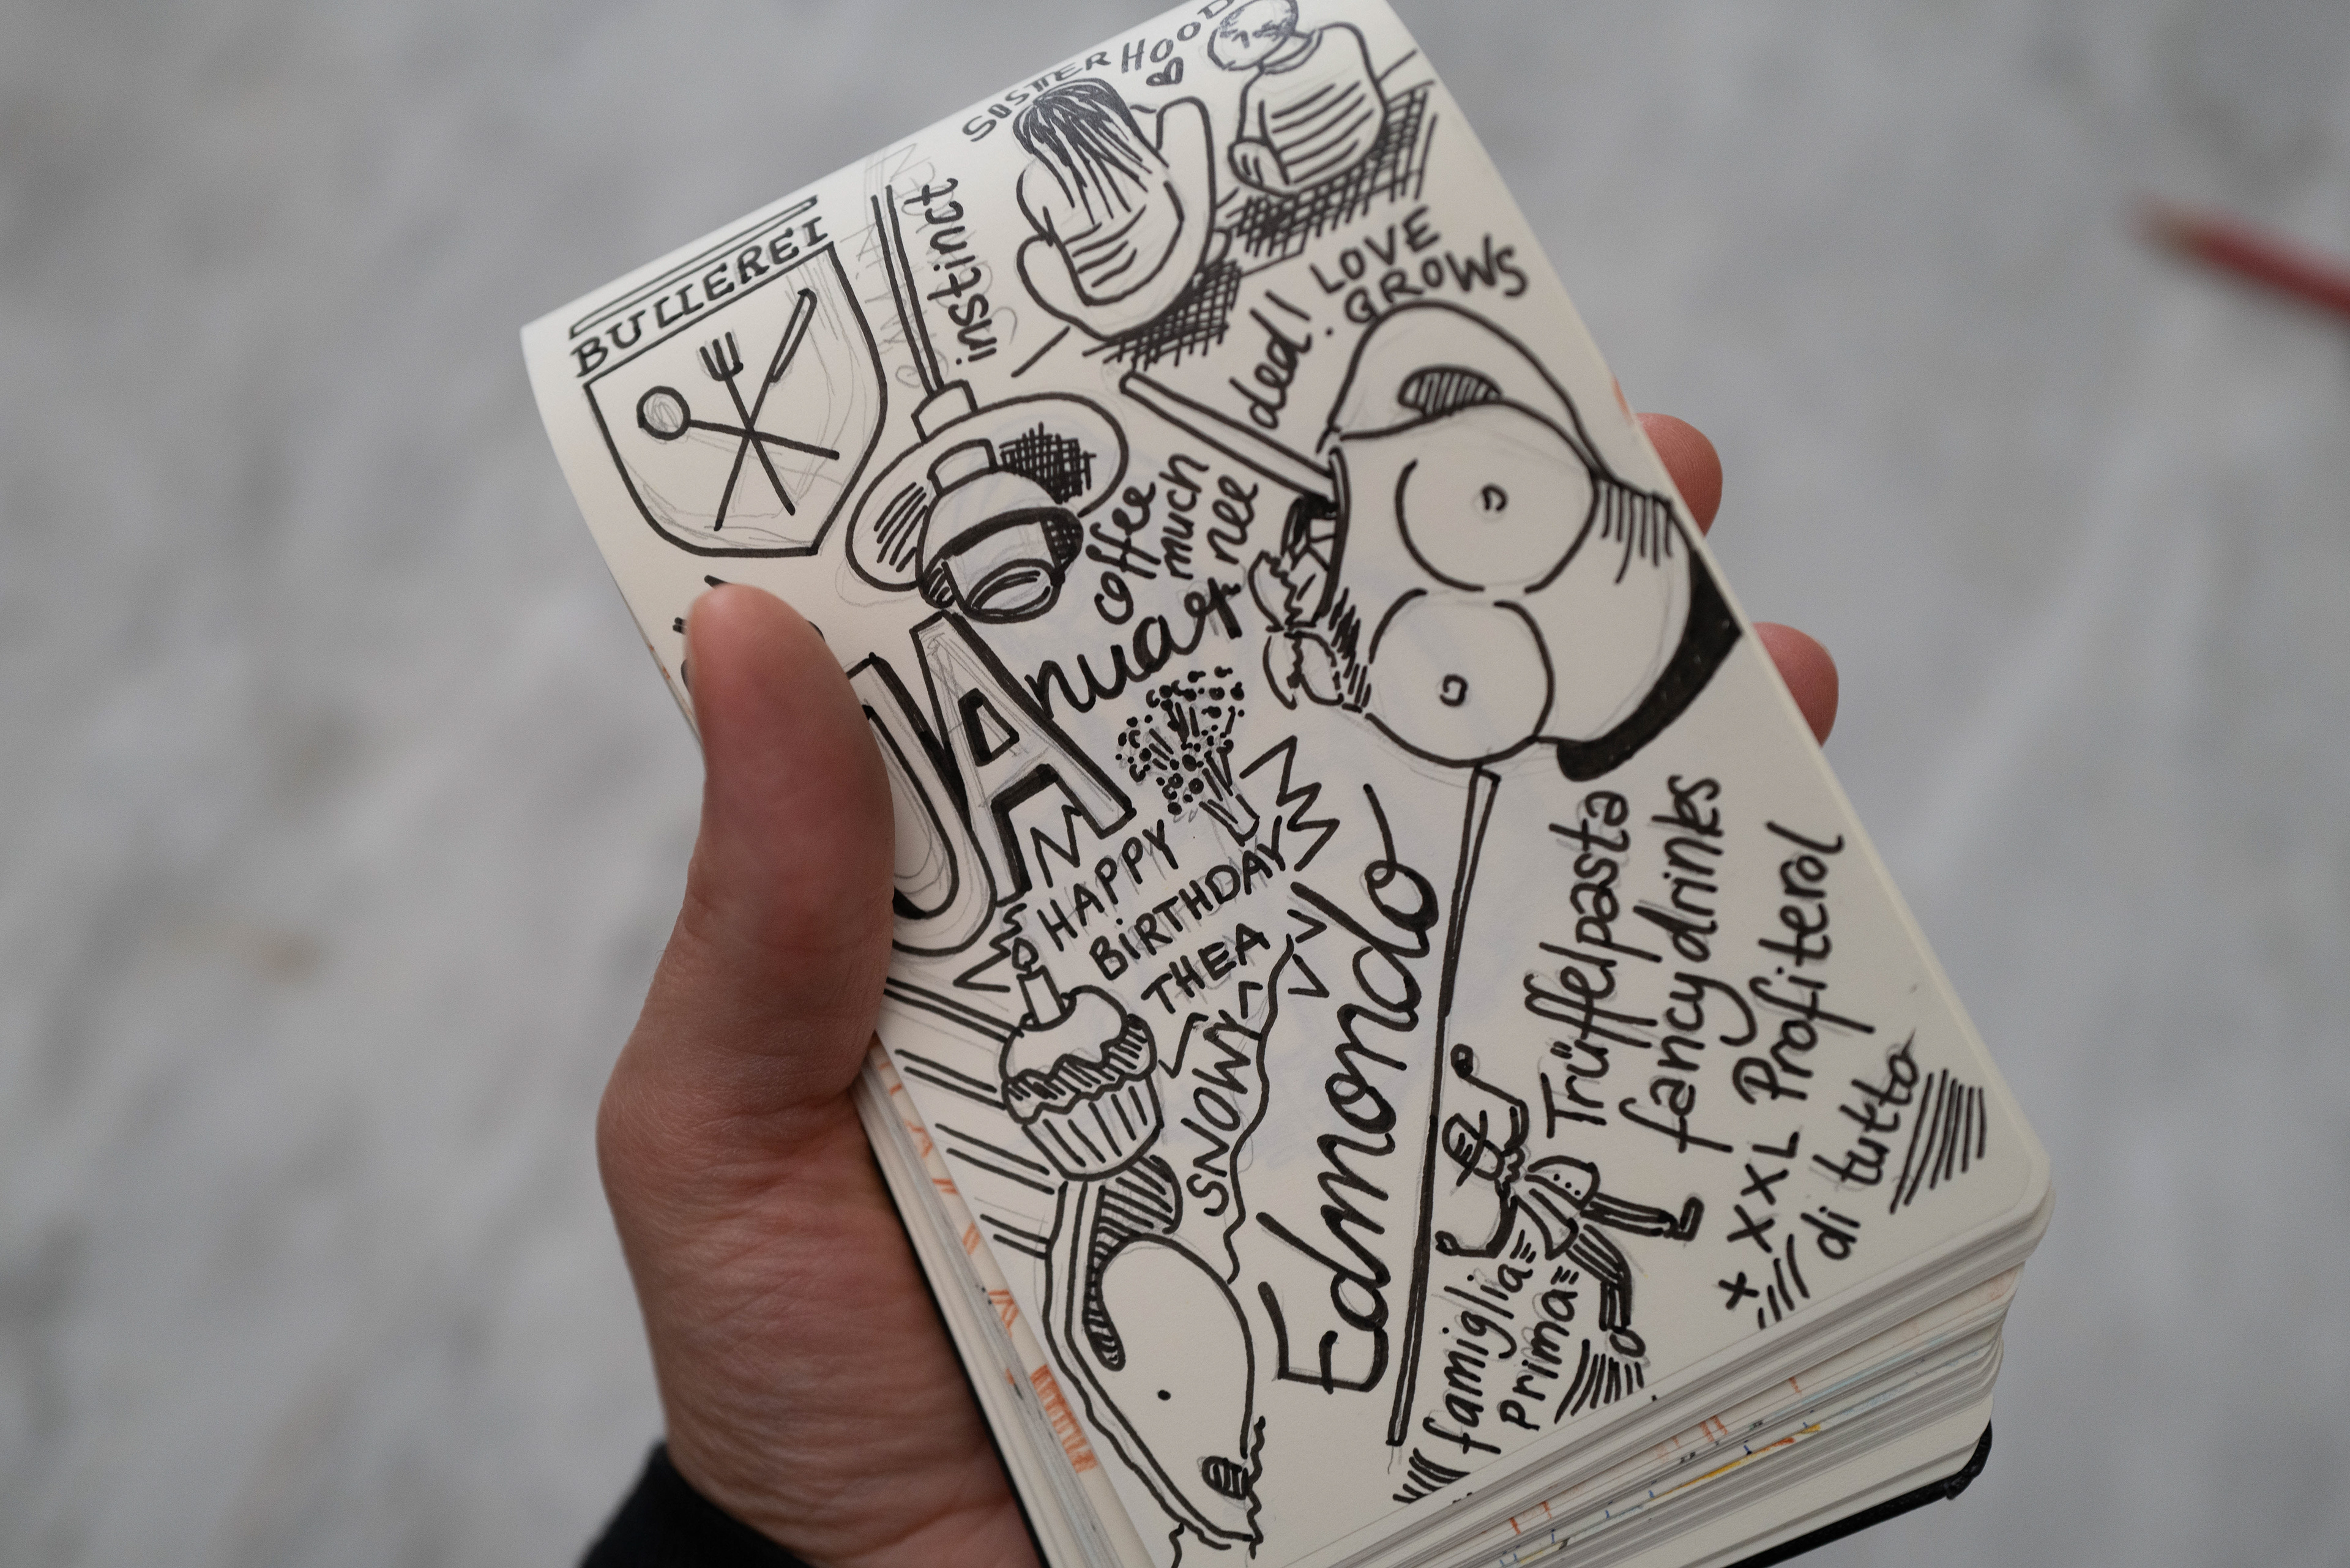 SOSTERHOOD
BULLEREI
instinct
LOVE
GROWS
ded!
coffee
much
nee
JAnuary
HAPPY
BiRTHDAY
THEA
SNOWY
Edmondo
Trüffelpasta
fancydrinks
XXL Profiterol
+ di tutto
famiglia
Prima